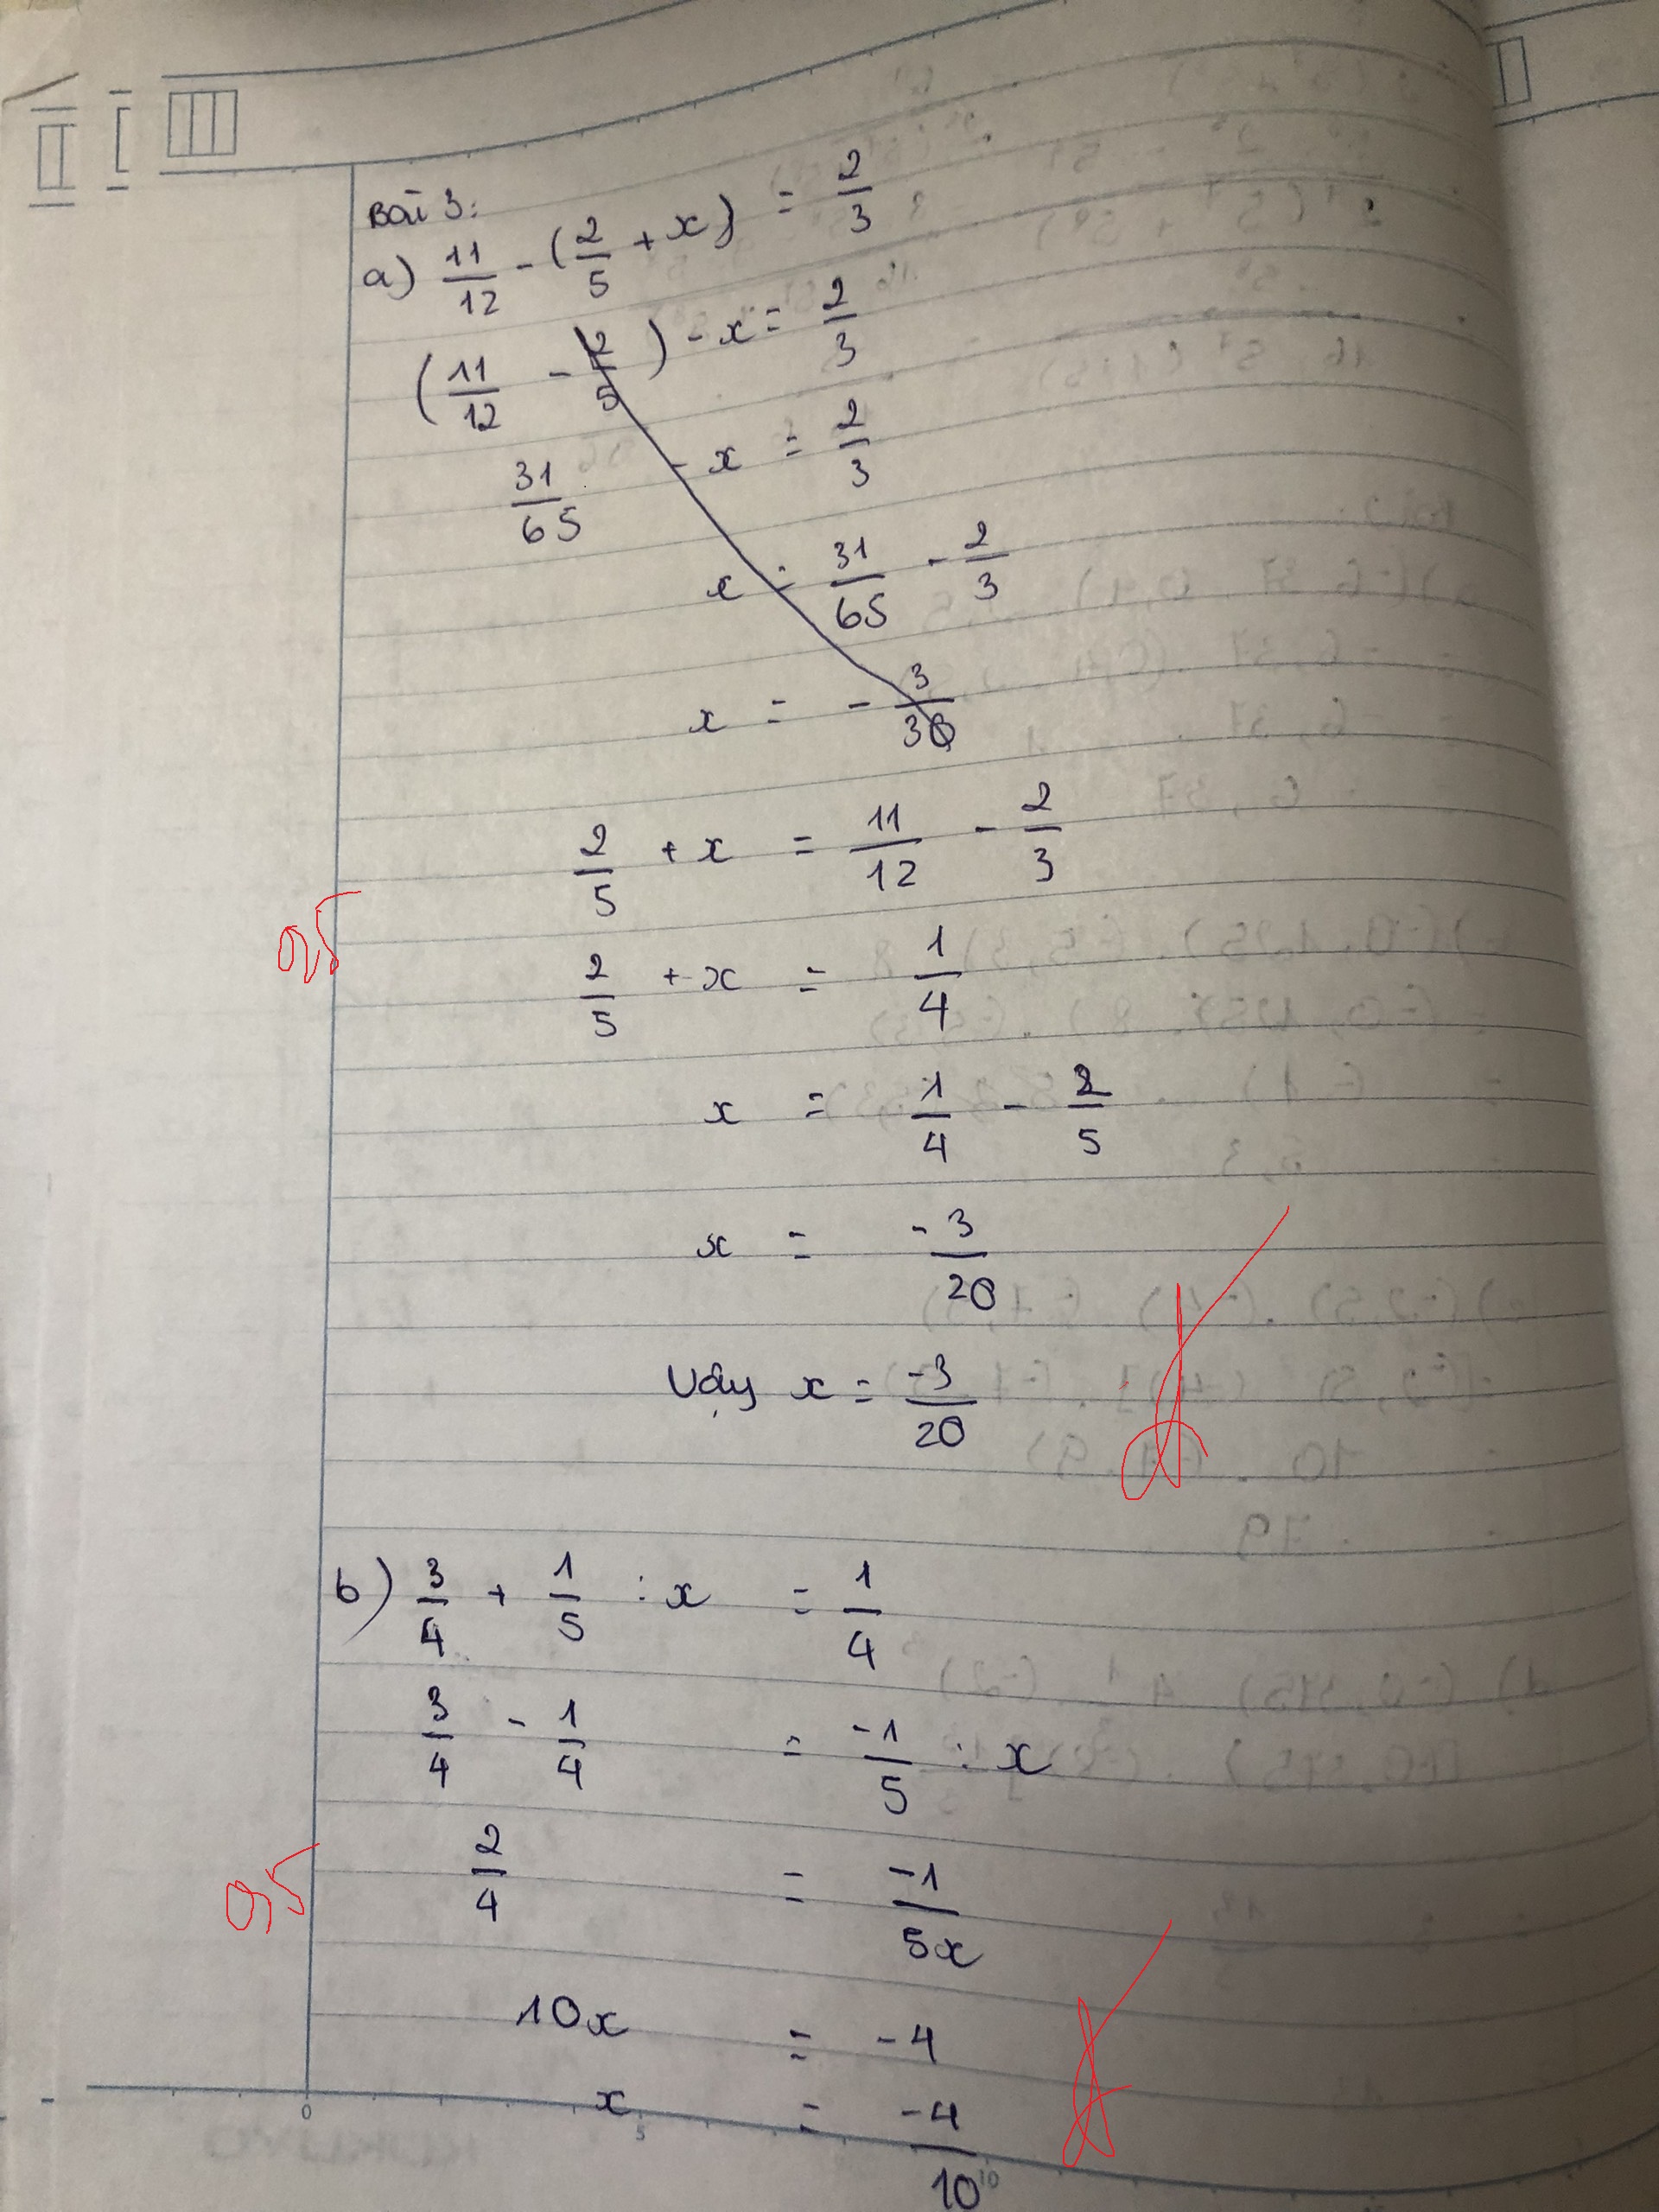 Bài 3:
a) 11/12 - (2/5 + x) = 2/3
(11/12 - 2/5) - x = 2/3
31/65 - x = 2/3
x = 31/65 - 2/3
x = - 3/30
2/5 + x = 11/12 - 2/3
0,5
2/5 + x = 1/4
x = 1/4 - 2/5
x = -3/20
Vậy x = -3/20
đ
b) 3/4 + 1/5 : x = 1/4
3/4 - 1/4 = -1/5 : x
0,5
2/4 = -1/5x
10x = -4
x = -4/10
đ
0 5 10